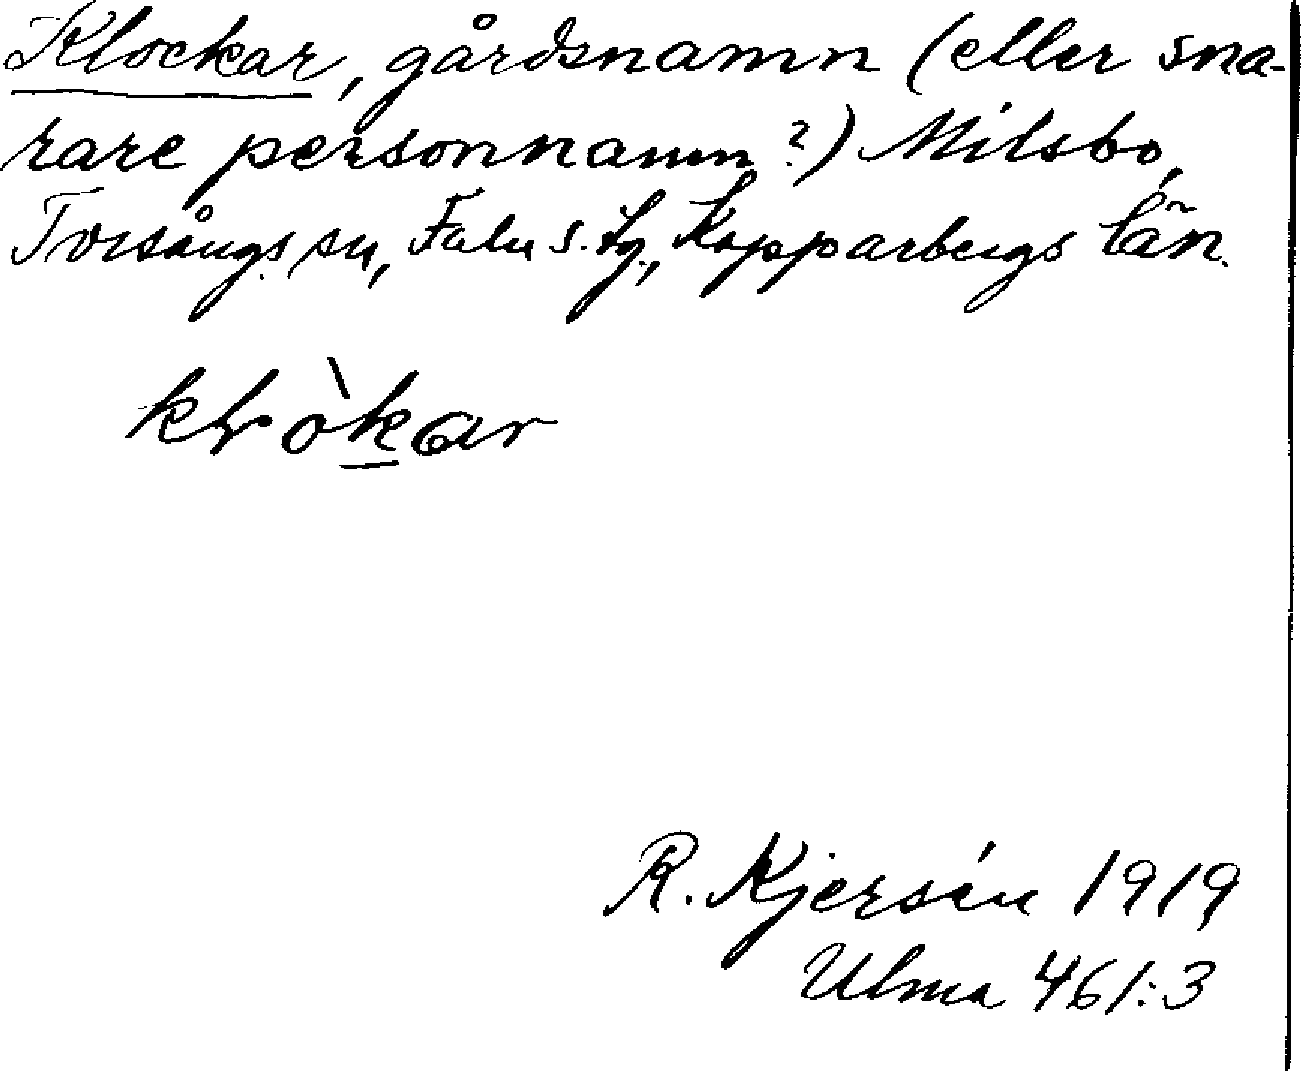 Klockar, gårdsnamn (eller sna-
rare personnamn?) Milsbo,
Torsångs sn, Falu s. tg., Kopparbergs län.
klòkar
R. Kjersén 1919
Ulma 461:3